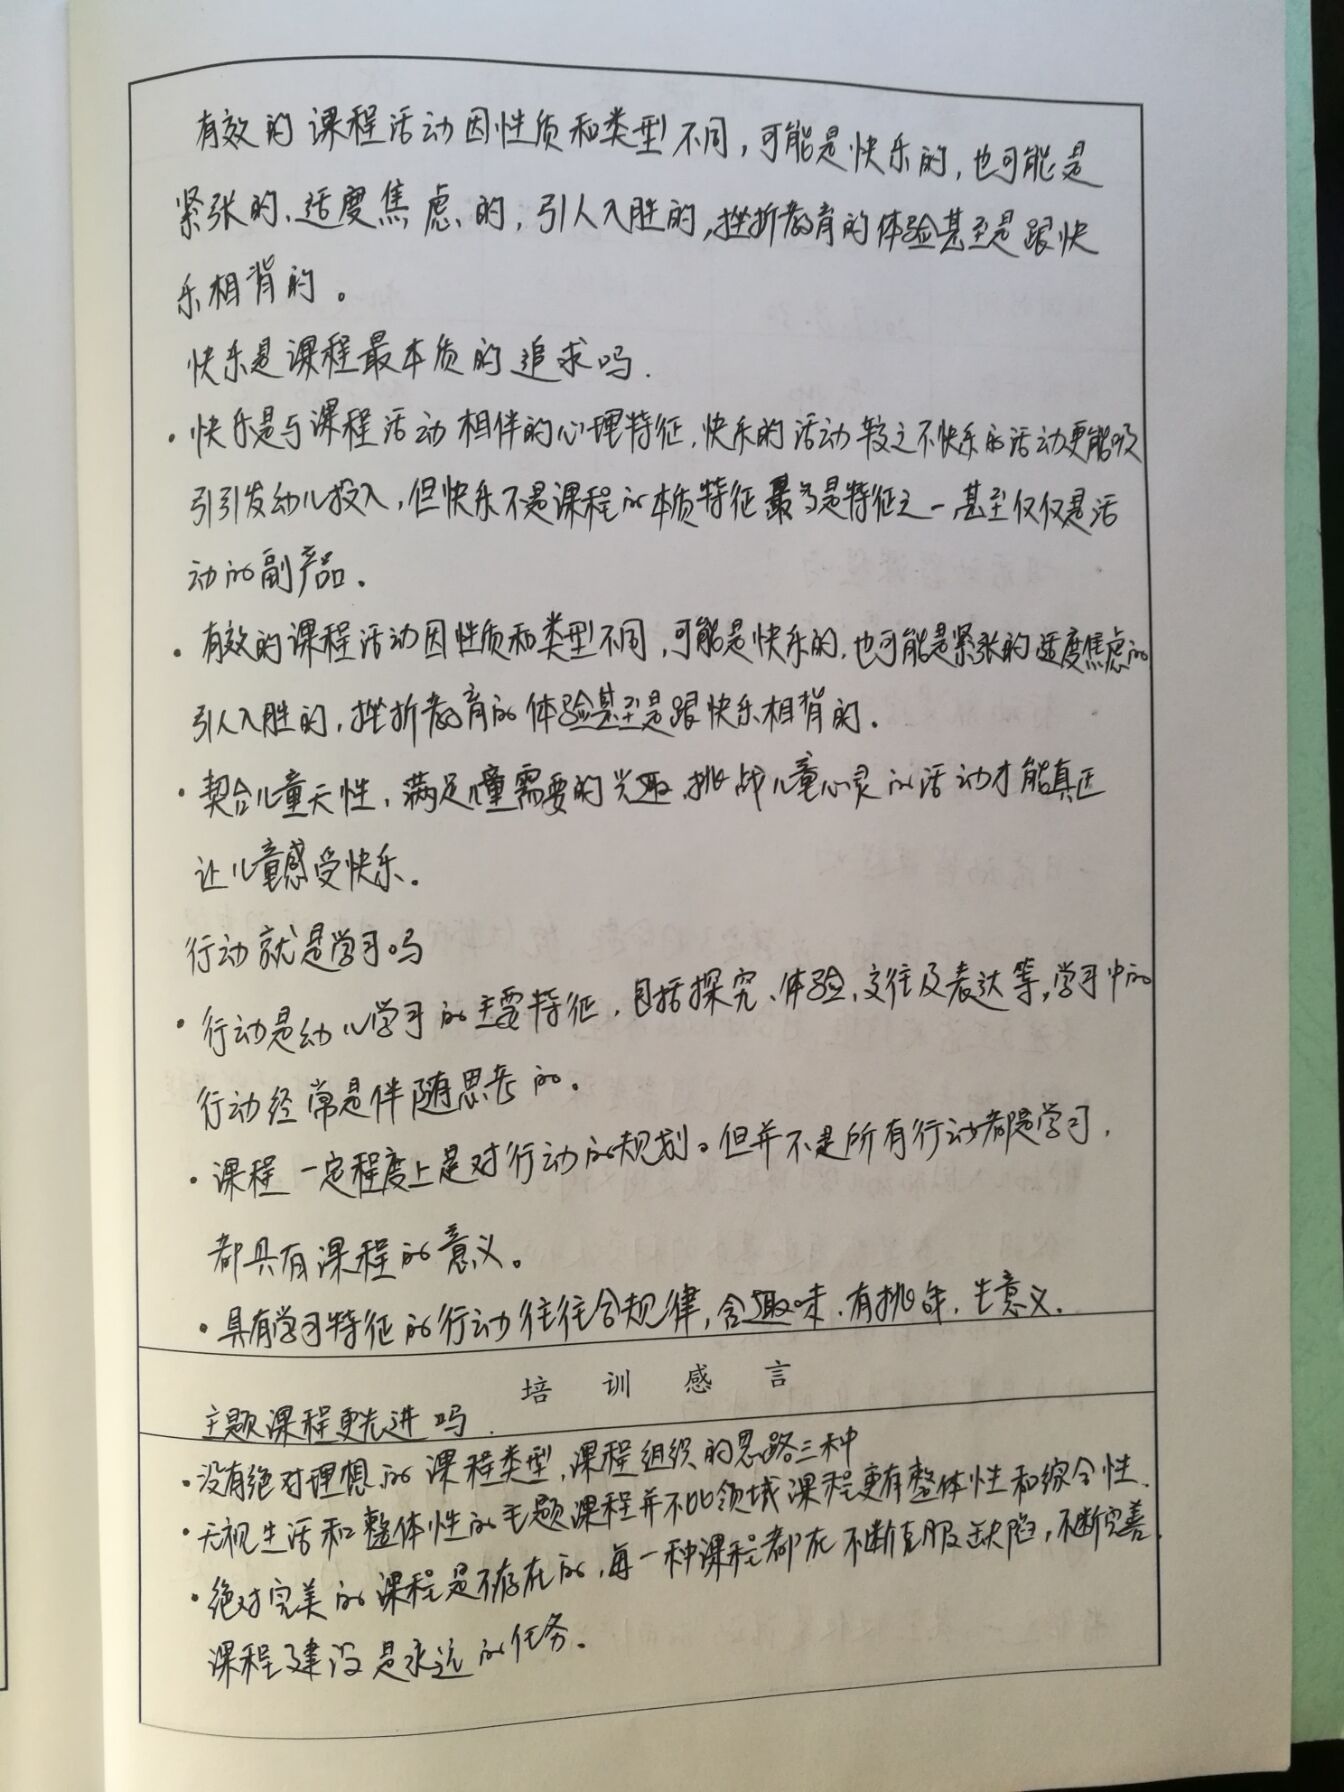 有效的课程活动因性质和类型不同，可能是快乐的，也可能是
紧张的、适度焦虑的，引人入胜的，挫折教育的体验甚至是跟快
乐相背的。
快乐是课程最本质的追求吗.
·快乐是与课程活动相伴的心理特征，快乐的活动较之不快乐的活动更能吸
引引发幼儿投入，但快乐不是课程的本质特征最多是特征之一，甚至仅仅是活
动的副产品。
·有效的课程活动因性质和类型不同，可能是快乐的，也可能是紧张的适度焦虑的
引人入胜的，挫折教育的体验甚至是跟快乐相背的。
·契合儿童天性，满足儿童需要的兴趣、挑战儿童心灵的活动才能真正
让儿童感受快乐。
行动就是学习吗
·行动是幼儿学习的主要特征，包括探究、体验、交往及表达等，学习中的
行动经常是伴随思考的。
·课程一定程度上是对行动的规划。但并不是所有行动都是学习，
都具有课程的意义。
·具有学习特征的行动往往合规律，含趣味，有挑战，生意义.
培训感言
主题课程更先进吗.
·没有绝对理想的课程类型，课程组织的思路三种
·无视生活和整体性的主题课程并不比领域课程更有整体性和综合性.
·绝对完美的课程是不存在的，每一种课程都在不断克服缺陷，不断完善.
课程建设是永远的任务。